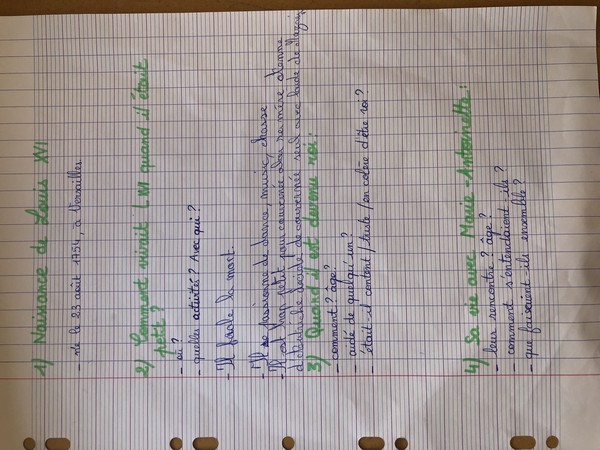 1) Naissance de Louis XVI
- né le 23 août 1754, à Versailles
2) Comment vivait L XVI quand il était
petit ?
- où ?
- quelles activités ? Avec qui ?
- Il frôle la mort.
- Il se passionne de danse, music, chasse
- Il est trop petit pour couronnée alors sa mère Anne
d'Autriche décide de gouverner seul avec l'aide de Mazarin
3) Quand il est devenu roi :
- comment ? âge ?
- aidé de quelqu'un ?
- était-il content / triste / en colère d'être roi ?
4) Sa vie avec Marie-Antoinette :
- leur rencontre ? âge ?
- comment s'entendaient-ils ?
- que faisaient-ils ensemble ?